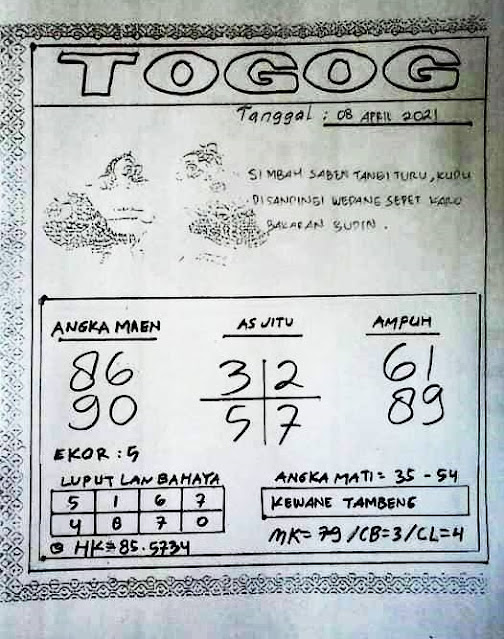 TOGOG
Tanggal : 08 APRIL 2021
SIMBAH SABEN TANGI TURU, KUDU
DISANDINGI WEDANG SEPET KARO
BAKARAN BUDIN.
ANGKA MAEN
86
90
EKOR : 5
AS JITU
3 2
5 7
AMPUH
61
89
LUPUT LAN BAHAYA
5 1 6 7
4 8 7 0
HK = 85.5734
ANGKA MATI = 35 - 54
KEWANE TAMBENG
MK = 79 / CB = 3 / CL = 4